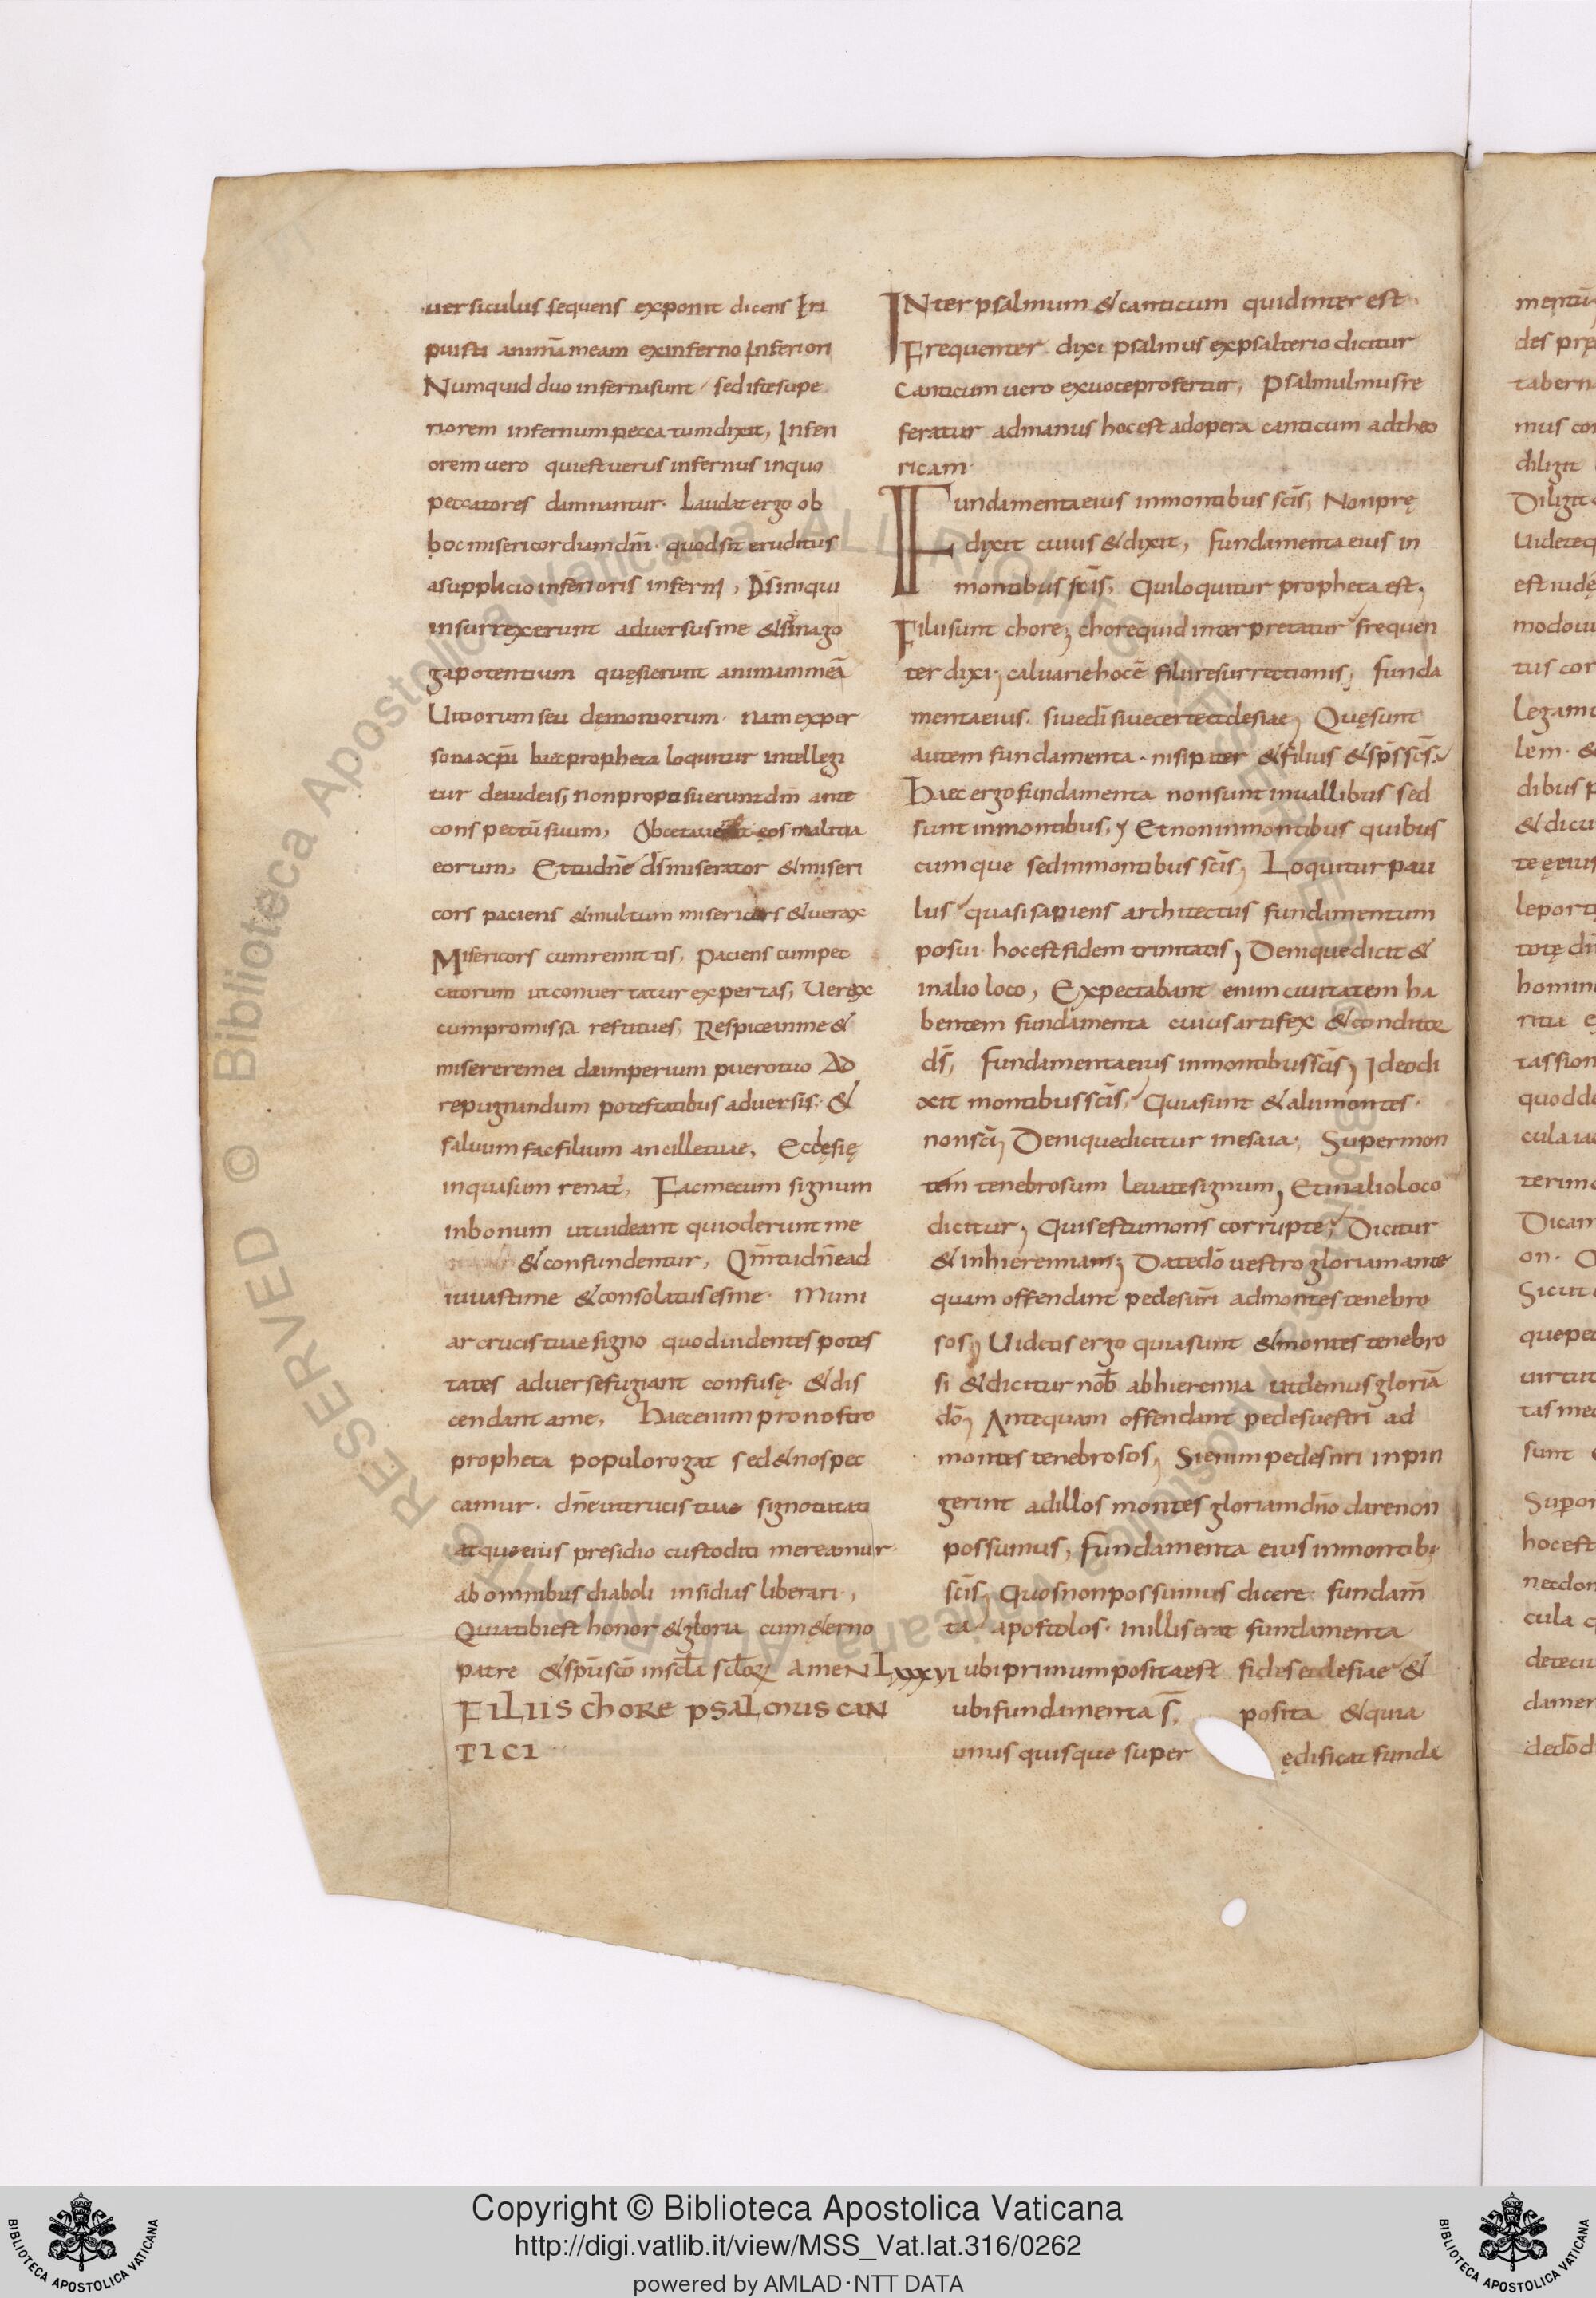 uersiculus sequens exponit dicens Iri
puisti animā meam exinferno Inferiori
Numquid duo infernasunt sed iste supe
riorem infernum peccatum dixit, Inferi
orem uero qui est uerus infernus inquo
peccatores damnantur. Laudat ergo ob
hoc misericordiam dni. quod sit eruditus
asupplicio inferioris inferni, Ds iniqui
insurrexerunt aduersusme & sinago
ga potentium quęsierunt animam meā
Uitiorum seu dęmoniorum. nam exper
sona xpi haec propheta loquitur intellegi
tur deiudeis, non proposuerunt dm ante
conspectū suum, eos malitia
eorum, Et tu dne ds miserator & miseri
cors paciens & multum misericors & uerax
Misericors cum remittis, Paciens cum pec
catorum ut conuertatur expectas, Uerax
cum promissa restitues, Respice inme &
miserere mei da imperium puero tuo Ad
repugnandum potestatibus aduersis, &
saluum fac filium ancille tuae, Ecclesię
in qua sum renat, Fac mecum signum
inbonum ut uideant qui oderunt me
& confundentur, Qm tu dne ad
iuuasti me & consolatus es me. Muni
ar crucis tuae signo quod uidentes potes
tates aduerse fugiant confusę. & dis
cendant ame, Haec enim pro nostro
propheta populo rogat sed & nos pec
camur. dne ut crucis tuae signo tutati
atque eius presidio custoditi mereamur
ab omnibus diaboli insidiis liberari,
Quia tibi est honor & gloria cum &erno
patre & spu sco inscla sclorum amen LXXXVI
FILIIS CHORE PSALMUS CAN
TICI
INter psalmum & canticum quid inter est.
Frequenter dixi psalmus ex psalterio dicitur
Canticum uero ex uoce profertur, Psalmulmus re
feratur admanus hoc est ad opera canticum ad theo
ricam
Fundamenta eius inmontibus scis, Non prę
dixit cuius & dixit, fundamenta eius in
montibus scis, Qui loquitur propheta est,
Filii sunt chore, chore quid interpretatur frequen
ter dixi, caluarie hoc ē filii resurrectionis, funda
menta eius. siue di siue certe ecclesiae, Quę sunt
autem fundamenta. nisi pater & filius & sps scs,
Haec ergo fundamenta non sunt inuallibus sed
sunt inmontibus, Et non inmontibus quibus
cumque sed inmontibus scis, Loquitur pau
lus quasi sapiens architectus fundamentum
posui. hoc est fidem trinitatis, Denique dicit &
inalio loco, Expectabant enim ciuitatem ha
bentem fundamenta cuius artifex & conditor
ds, fundamenta eius inmontibus scis, Ideo di
xit montibus scis, Quia sunt & alii montes.
non sci, Denique dicitur inesaia, Super mon
tem tenebrosum leuate signum, Et inalio loco
dicitur, Quis es tu mons corrupte, Dicitur
& inhieremiam, Date do uestro gloriam ante
quam offendant pedes uri ad montes tenebro
sos, Uidetis ergo quia sunt & montes tenebro
si & dicitur nob ab hieremia ut demus gloriā
do, Antequam offendant pedes uestri ad
montes tenebrosos, Si enim pedes nri inpin
gerint ad illos montes gloriam dno dare non
possumus, fundamenta eius inmontib;
scis, Quos non possumus dicere fundam
ta apostolos. inillis erat fundamenta
ubi primum posita est fides ecclesiae &
ubi fundamenta s. posita & quia
unus quisque super ędificat funda
Copyright © Biblioteca Apostolica Vaticana
http://digi.vatlib.it/view/MSS_Vat.lat.316/0262
powered by AMLAD·NTT DATA
BIBLIOTECA APOSTOLICA VATICANA
BIBLIOTECA APOSTOLICA VATICANA